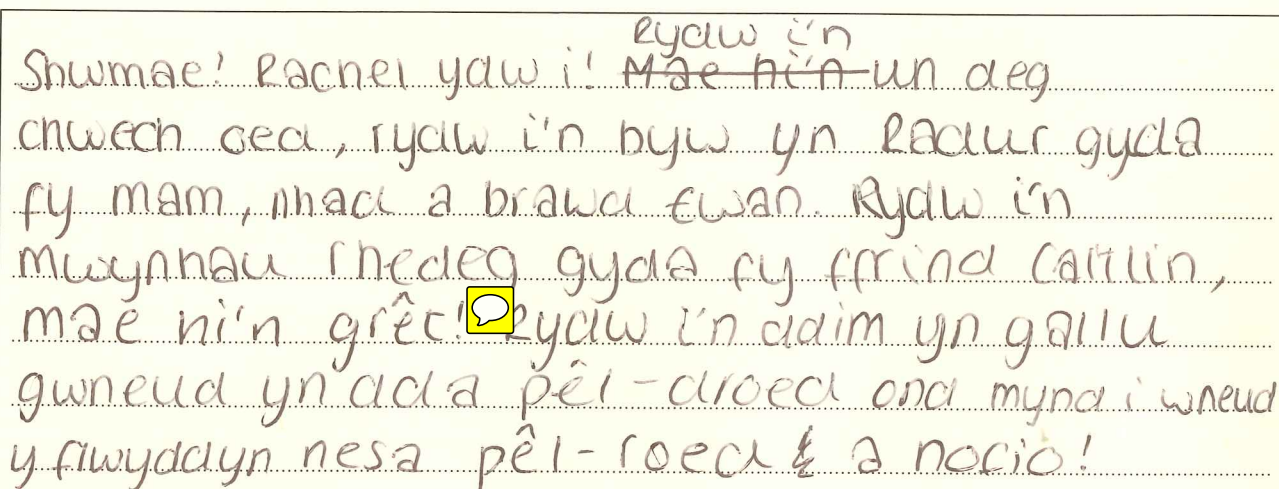 Rydw i'n
Shwmae! Rachel ydw i! Mae hi'n un deg
chwech oed, rydw i'n byw yn Radur gyda
fy mam, nhad a brawd Ewan. Rydw i'n
mwynhau rhedeg gyda fy ffrind Caitlin,
mae hi'n grêt! Rydw i'n ddim yn gallu
gwneud yn dda pêl-droed ond mynd i wneud
y flwyddyn nesa pêl-roed & a hocio!